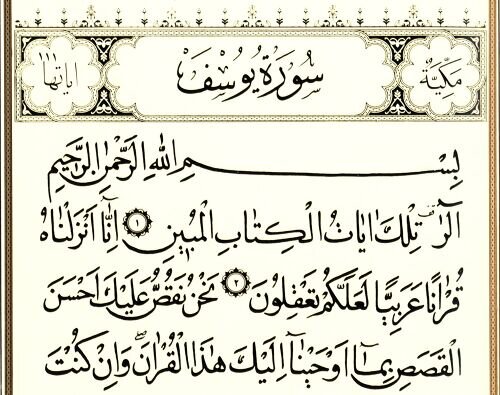 مَكِّيَّةٌ سُورَةُ يُوسُفَ اٰيَاتُهَا ١١١
بِسْمِ اللهِ الرَّحْمٰنِ الرَّحِيمِ
الٓرٰ تِلْكَ اٰيَاتُ الْكِتَابِ الْمُبٖينِ ۝١ اِنَّٓا اَنْزَلْنَاهُ
قُرْاٰنًا عَرَبِيًّا لَعَلَّكُمْ تَعْقِلُونَ ۝٢ نَحْنُ نَقُصُّ عَلَيْكَ اَحْسَنَ
الْقَصَصِ بِمَٓا اَوْحَيْنَٓا اِلَيْكَ هٰذَا الْقُرْاٰنَ وَاِنْ كُنْتَ